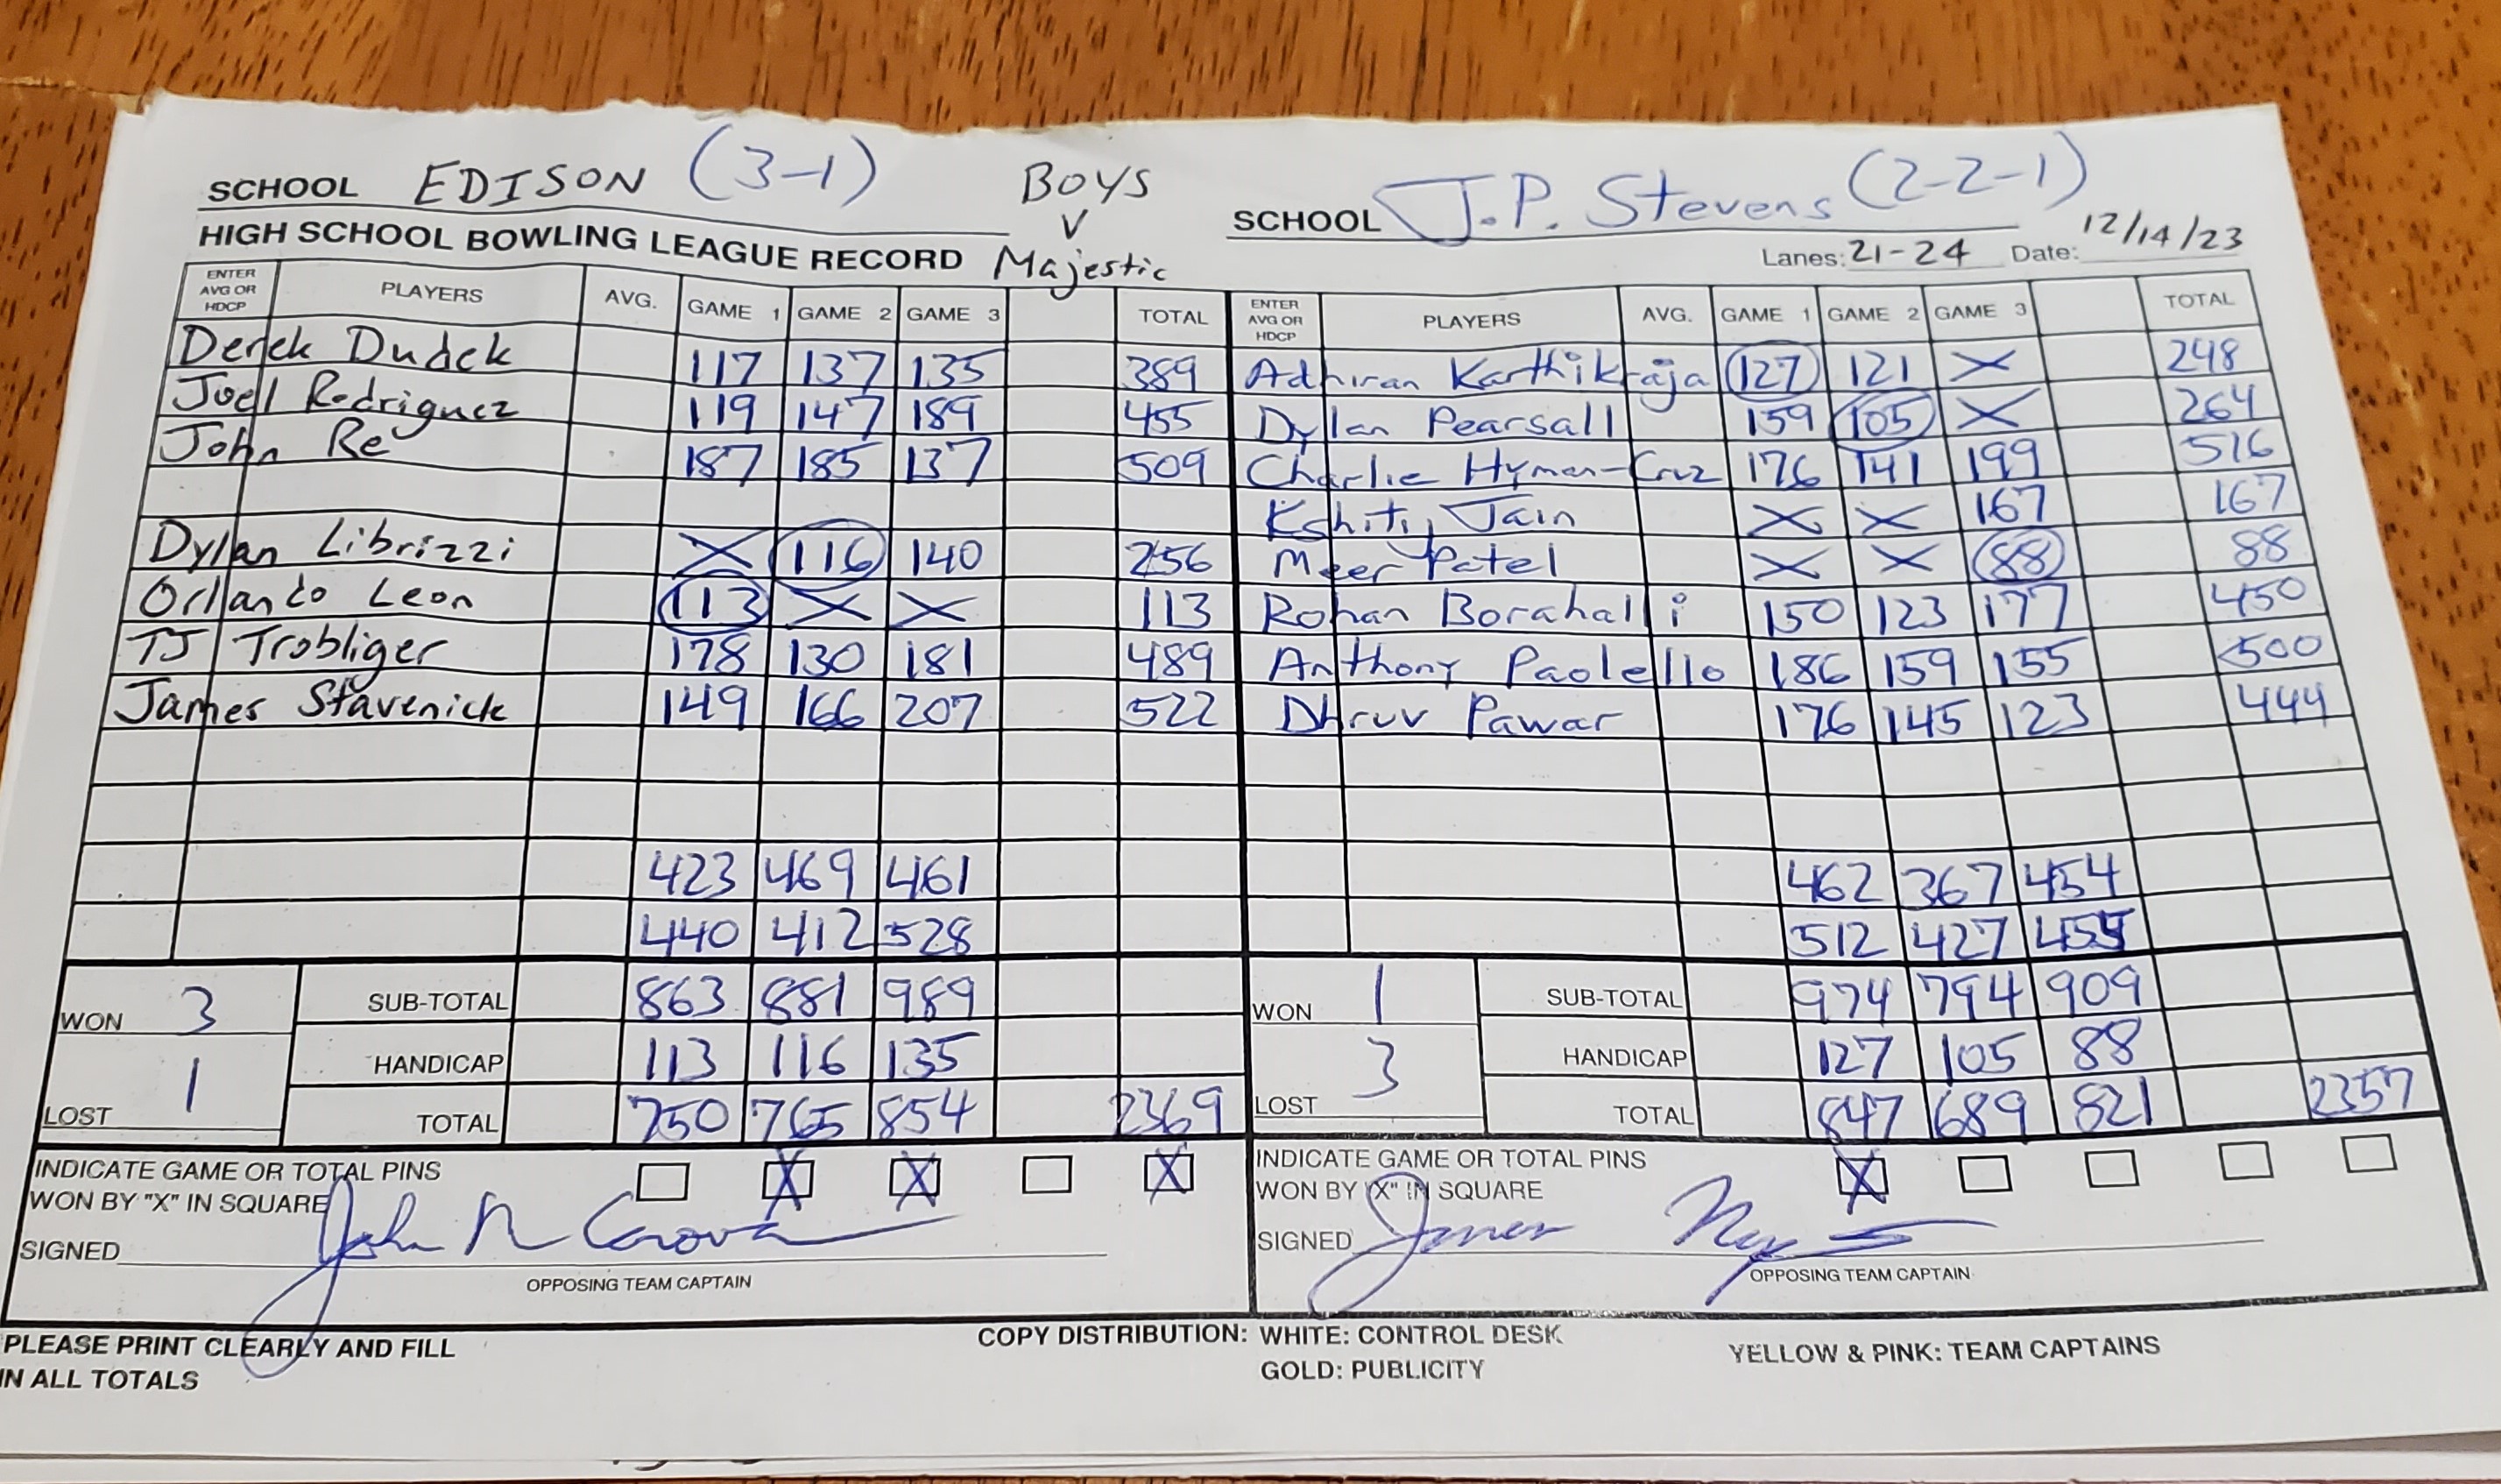 SCHOOL EDISON (3-1) BOYS SCHOOL J.P. Stevens (2-2-1)
HIGH SCHOOL BOWLING LEAGUE RECORD V Majestic Lanes: 21-24 Date: 12/14/23
ENTER AVG OR HDCP PLAYERS AVG. GAME 1 GAME 2 GAME 3 TOTAL ENTER AVG OR HDCP PLAYERS AVG. GAME 1 GAME 2 GAME 3 TOTAL
Derek Dudek 117 137 135 389 Adhiran Karthikraja 127 121 X 248
Joel Rodriguez 119 147 189 455 Dylan Pearsall 159 105 X 264
John Re 187 185 137 509 Charlie Hyman-Cruz 176 141 199 516
Kshitij Jain X X 167 167
Dylan Librizzi X 116 140 256 Meer Patel X X 88 88
Orlando Leon 113 X X 113 Rohan Borahalli 150 123 177 450
TJ Trobliger 178 130 181 489 Anthony Paolello 186 159 155 500
James Stavenick 149 166 207 522 Dhruv Pawar 176 145 123 444
423 469 461 462 367 454
440 412 528 512 427 455
WON 3 SUB-TOTAL 863 881 989 WON 1 SUB-TOTAL 974 794 909
HANDICAP 113 116 135 HANDICAP 127 105 88
LOST 1 TOTAL 750 765 854 2369 LOST 3 TOTAL 847 689 821 2357
INDICATE GAME OR TOTAL PINS X X X INDICATE GAME OR TOTAL PINS X
WON BY "X" IN SQUARE WON BY "X" IN SQUARE
SIGNED John SIGNED James
OPPOSING TEAM CAPTAIN OPPOSING TEAM CAPTAIN
PLEASE PRINT CLEARLY AND FILL COPY DISTRIBUTION: WHITE: CONTROL DESK YELLOW & PINK: TEAM CAPTAINS
IN ALL TOTALS GOLD: PUBLICITY